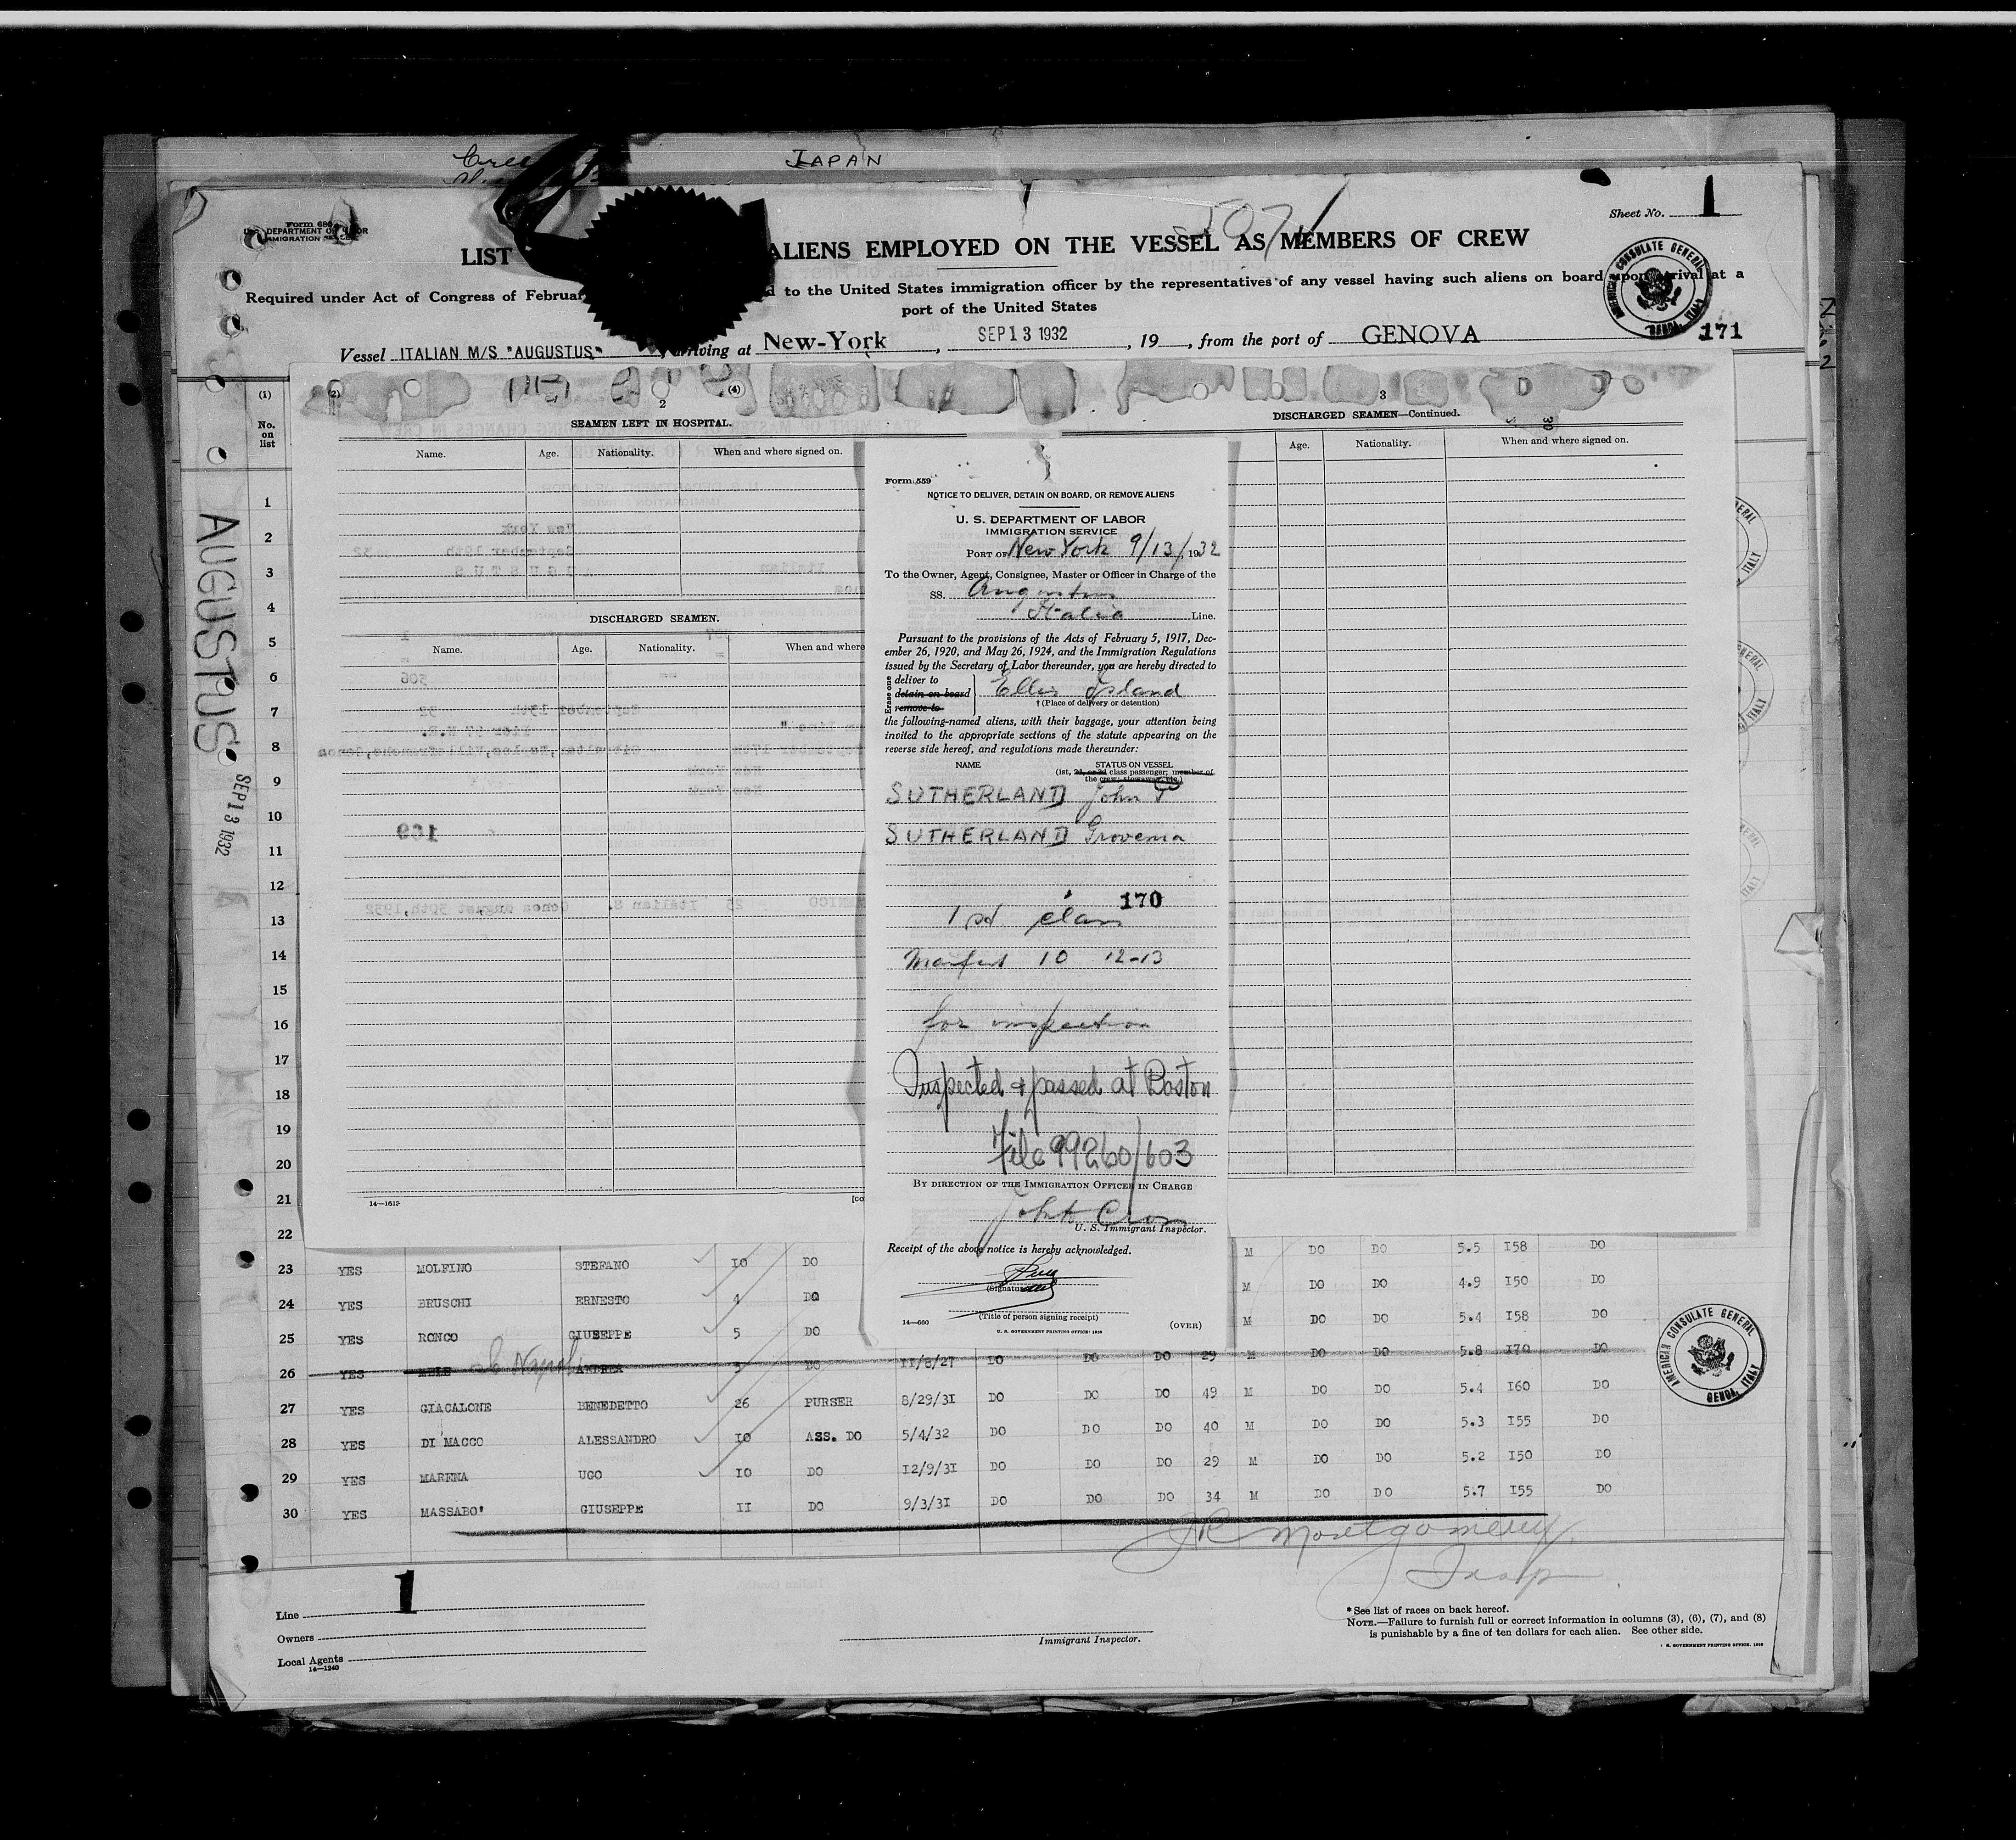 JAPAN
Form 680
U. S. DEPARTMENT OF LABOR
IMMIGRATION SERVICE
5071
Sheet No. 1
LIST ALIENS EMPLOYED ON THE VESSEL AS MEMBERS OF CREW
Required under Act of Congress of Februar d to the United States immigration officer by the representatives of any vessel having such aliens on board upon arrival at a
port of the United States
AMERICAN CONSULATE GENERAL
GENOA, ITALY
Vessel ITALIAN M/S "AUGUSTUS" , arriving at New-York , SEP 13 1932 , 19 , from the port of GENOVA 171
(1) (2) (4)
No. on list
AUGUSTUS
SEP 13 1932
2
SEAMEN LEFT IN HOSPITAL.
Name. Age. Nationality. When and where signed on.
DISCHARGED SEAMEN.
Name. Age. Nationality. When and where
3
DISCHARGED SEAMEN—Continued.
Age. Nationality. When and where signed on.
1
2
3
4
5
6
7
8
9
10
11
12
13
14
15
16
17
18
19
20
21
22
14—1613
[CO
Form 559
NOTICE TO DELIVER, DETAIN ON BOARD, OR REMOVE ALIENS
U. S. DEPARTMENT OF LABOR
IMMIGRATION SERVICE
PORT OF New York 9/13/, 1932
To the Owner, Agent, Consignee, Master or Officer in Charge of the
SS. Augustus
Italia Line.
Pursuant to the provisions of the Acts of February 5, 1917, Dec-
ember 26, 1920, and May 26, 1924, and the Immigration Regulations
issued by the Secretary of Labor thereunder, you are hereby directed to
Erase one
deliver to
detain on board
remove to
Ellis Island
† (Place of delivery or detention)
the following-named aliens, with their baggage, your attention being
invited to the appropriate sections of the statute appearing on the
reverse side hereof, and regulations made thereunder:
NAME STATUS ON VESSEL
(1st, 2d, or 3d class passenger; member of
the crew; stowaway, etc.)
SUTHERLAND John P
SUTHERLAND Grovema
170
1 st class
Manifest 10 12-13
for inspection
Inspected + passed at Boston
File 99260/603
BY DIRECTION OF THE IMMIGRATION OFFICER IN CHARGE
U. S. Immigrant Inspector.
Receipt of the above notice is hereby acknowledged.
(Signature)
(Title of person signing receipt)
14—660
U. S. GOVERNMENT PRINTING OFFICE: 1930
(OVER)
M DO DO 5.5 158 DO
23 YES MOLFINO STEFANO 10 DO M DO DO 4.9 150 DO
24 YES BRUSCHI ERNESTO 4 DO M DO DO 5.4 158 DO
25 YES RONCO GIUSEPPE 5 DO
26 YES MELE ANDREA 3 DO 11/8/27 DO DO DO 29 M DO DO 5.8 170 DO
27 YES GIACALONE BENEDETTO 26 PURSER 8/29/31 DO DO DO 49 M DO DO 5.4 160 DO
28 YES DI MACCO ALESSANDRO 10 ASS. DO 5/4/32 DO DO DO 40 M DO DO 5.3 155 DO
29 YES MARENA UGO 10 DO 12/9/31 DO DO DO 29 M DO DO 5.2 150 DO
30 YES MASSABO' GIUSEPPE 11 DO 9/3/31 DO DO DO 34 M DO DO 5.7 155 DO
AMERICAN CONSULATE GENERAL
GENOA, ITALY
JR Montgomery
Insp
1
Line
Owners
Local Agents
14—1240
Immigrant Inspector.
* See list of races on back hereof.
NOTE.—Failure to furnish full or correct information in columns (3), (6), (7), and (8)
is punishable by a fine of ten dollars for each alien. See other side.
U. S. GOVERNMENT PRINTING OFFICE: 1928